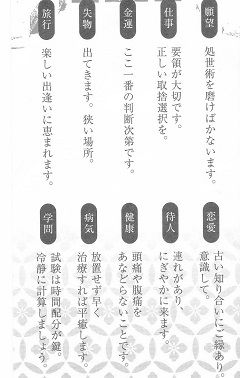 願望
処世術を磨けばかないます。
仕事
要領が大切です。
正しい取捨選択を。
金運
ここ一番の判断次第です。
失物
出てきます。狭い場所。
旅行
楽しい出逢いに恵まれます。
恋愛
古い知り合いにご縁あり。
意識して。
待人
連れがあり、
にぎやかに来ます。
健康
頭痛や腹痛を
あなどらないことです。
病気
放置せず早く
治療すれば平癒します。
学問
試験は時間配分が鍵。
冷静に計算しましょう。